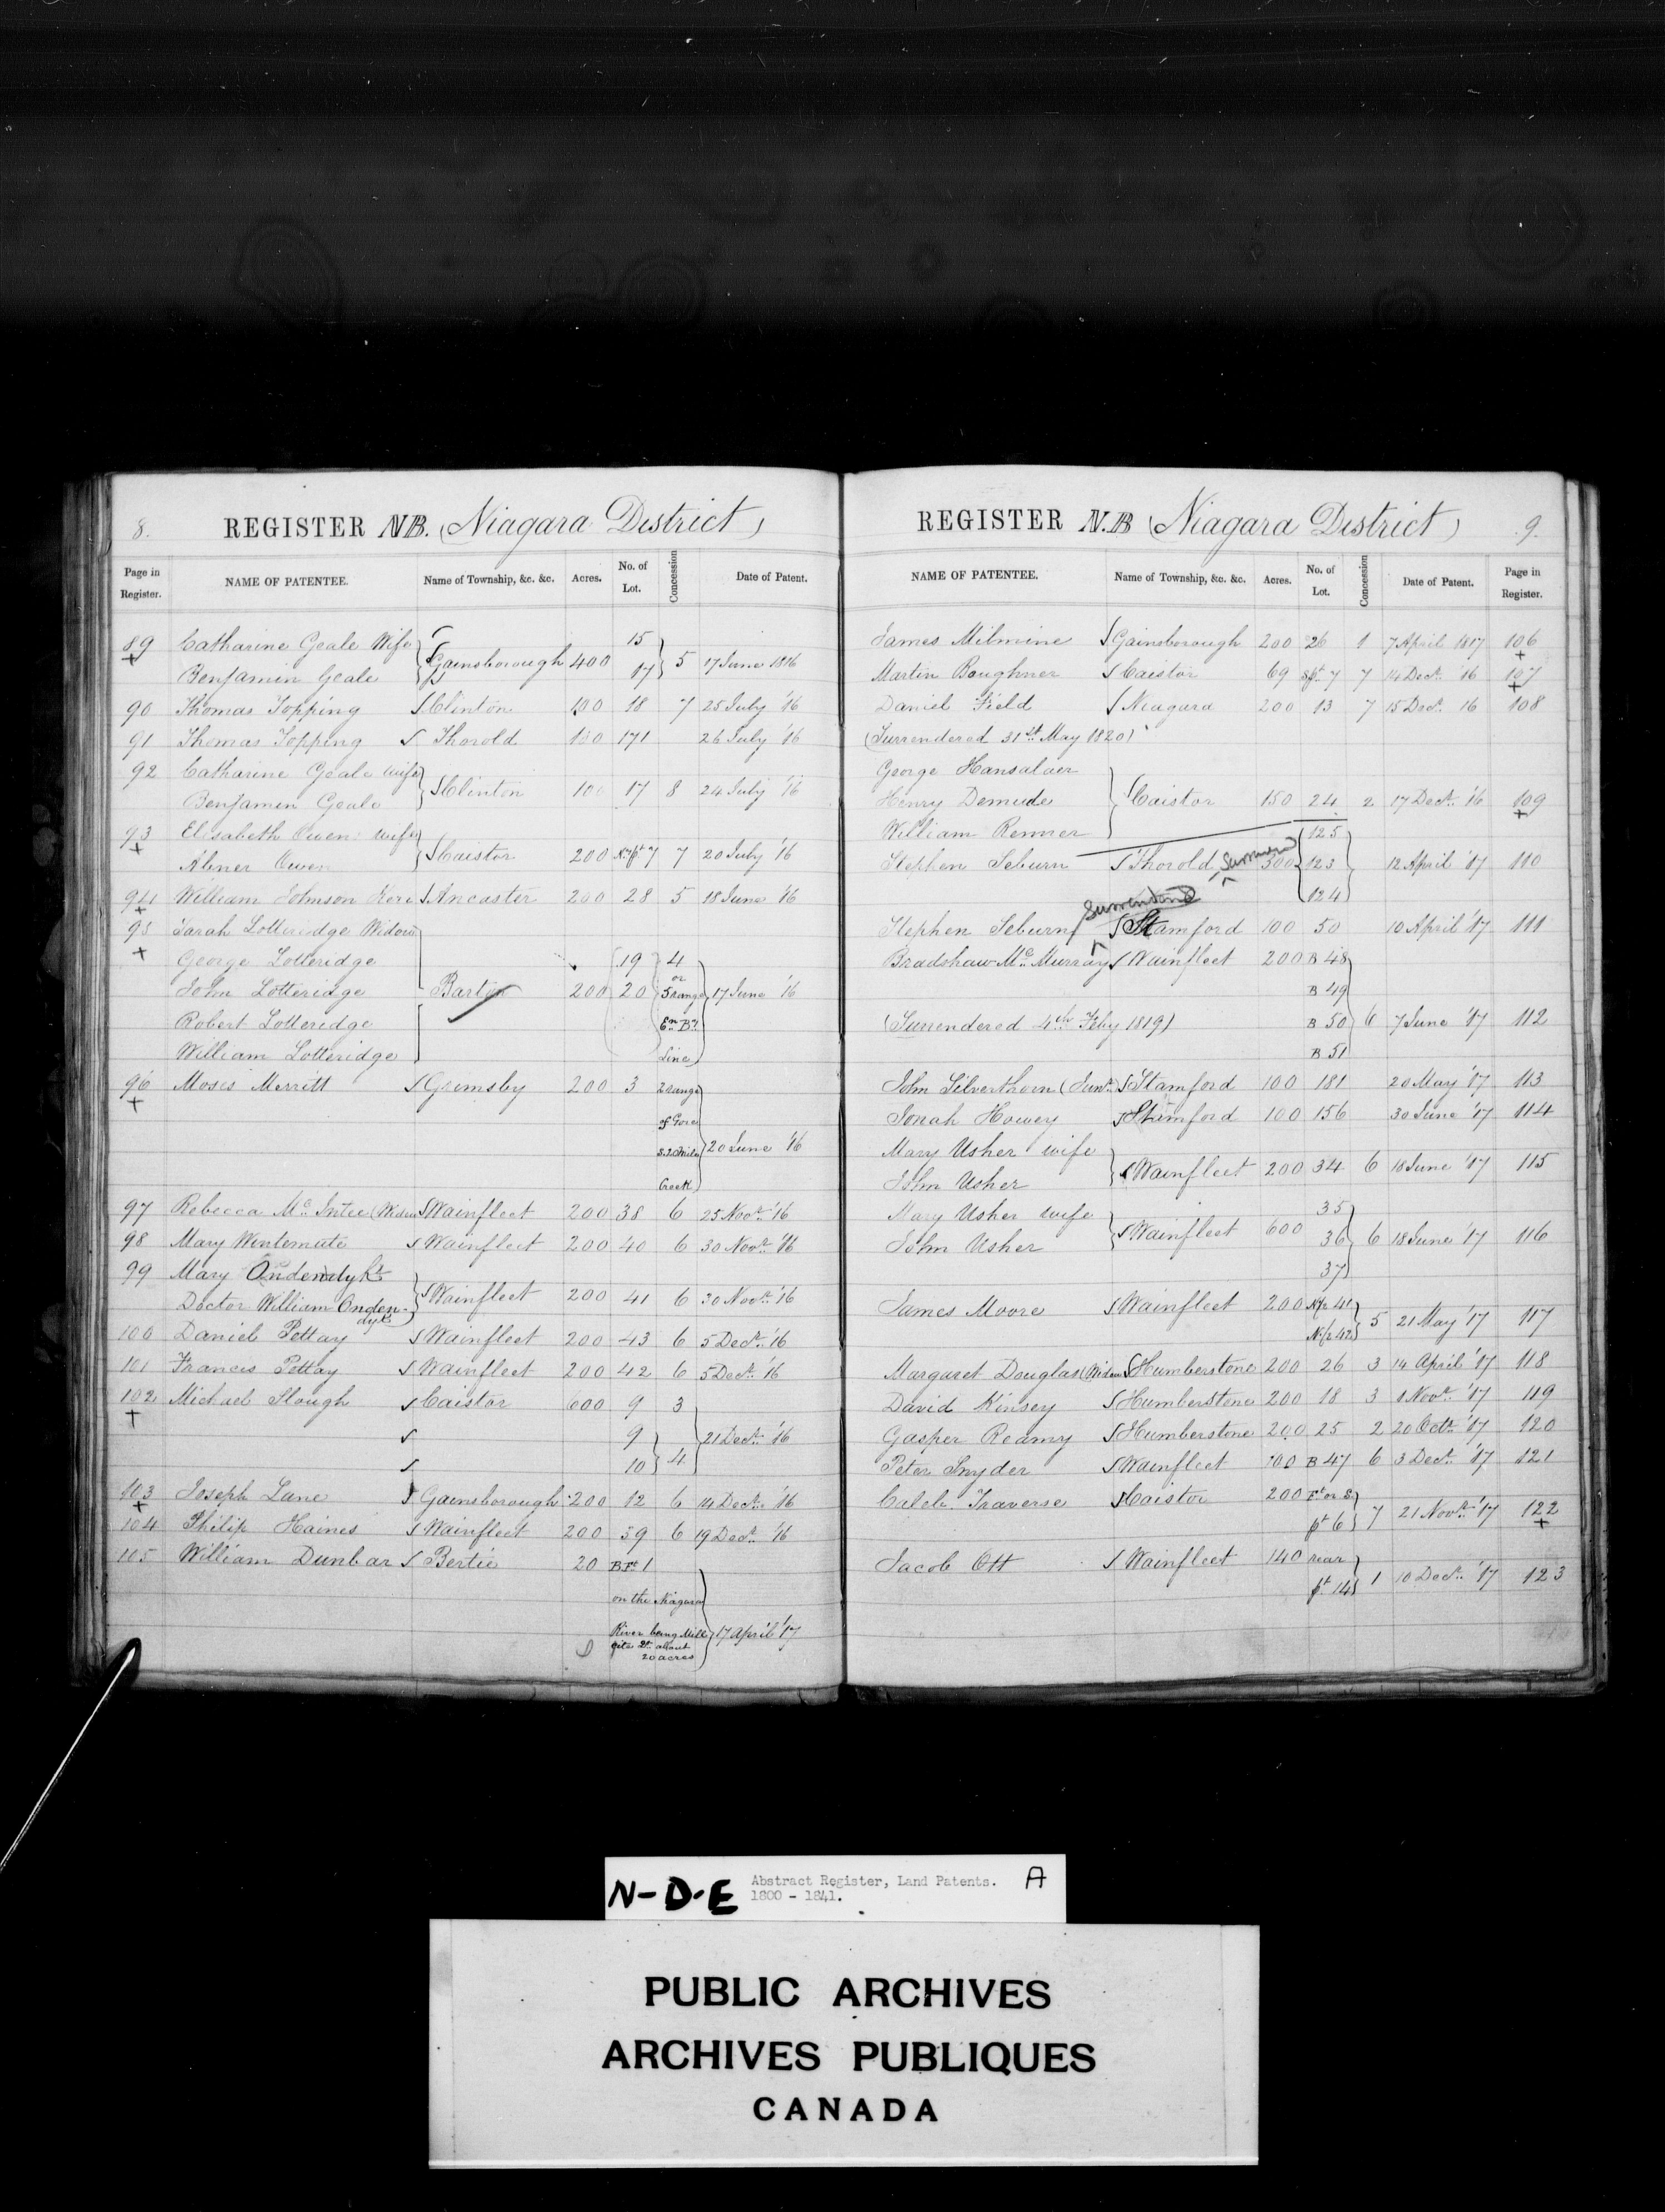 8.
REGISTER N.B. (Niagara District)
Page in Register. NAME OF PATENTEE. Name of Township, &c. &c. Acres. No. of Lot. Concession Date of Patent.
15
89 Catharine Geale Wife
+ Gainsborough 400 17 5 17 June 1816
Benjamin Geale
90 Thomas Topping Clinton 100 18 7 25 July '16
91 Thomas Topping Thorold 100 171 26 July '16
92 Catharine Geale wife
Clinton 100 17 8 24 July '16
Benjamin Geale
93 Elisabeth Owen wife
+ Abner Owen Caistor 200 N. pt 7 7 20 July '16
94 William Johnson Kerr Ancaster 200 28 5 18 June '16
+
95 Sarah Lotteridge Widow
+ George Lotteridge 19 4
or
John Lotteridge Barton 200 20 5 range 17 June '16
Robert Lotteridge
William Lotteridge Line
96 Moses Merritt Grimsby 200 3 2 range
+ of Gore
20 June '16
Creek
97 Rebecca McIntee (Widow Wainfleet 200 38 6 25 Novr. '16
98 Mary Wintemute Wainfleet 200 40 6 30 Novr. '16
99 Mary Ondendyke
Wainfleet 200 41 6 30 Novr. '16
Doctor William Onden-
dyke
100 Daniel Pettay Wainfleet 200 43 6 5 Decr. '16
101 Francis Pettay Wainfleet 200 42 6 5 Decr. '16
102 Michael Slough Caistor 600 9 3
+ 9 21 Decr. '16
10 4
103 Joseph Lane Gainsborough 200 12 6 14 Decr. '16
+
104 Philip Haines Wainfleet 200 39 6 19 Decr. '16
105 William Dunbar Bertie 20 B Ft. 1
on the Niagara
River being Mill 17 April '17
Site about
20 acres
REGISTER N.B (Niagara District) 9.
NAME OF PATENTEE. Name of Township, &c. &c. Acres. No. of Lot. Concession Date of Patent. Page in Register.
James Milmine Gainsborough 200 26 1 7 April 1817 106
+
Martin Boughner Caistor 69 S pt. 7 7 14 Decr. '16 107
+
Daniel Field Niagara 200 13 7 15 Decr. 16 108
(Surrendered 31st May 1820)
George Hansalaer
Henry Demude Caistor 150 24 2 17 Decr. '16 109
+
William Renner 125
Stephen Seburn Thorold Surrendered 300 123 12 April '17 110
124
Surrendered
Stephen Seburn Stamford 100 50 10 April '17 111
Bradshaw McMurray Wainfleet 200 B 48
B 49
(Surrendered 4th Feby 1819) B 50 6 7 June '17 112
B 51
John Silverthorn (Junr.) Stamford 100 181 20 May '17 113
Jonah Howey Stamford 100 156 30 June '17 114
Mary Usher wife
Wainfleet 200 34 6 18 June '17 115
John Usher
Mary Usher wife 35
John Usher Wainfleet 600 36 6 18 June '17 116
37
James Moore Wainfleet 200 N/2 41
5 21 May '17 117
N/2 42
Margaret Douglas (Widow Humberstone 200 26 3 14 April '17 118
David Kinsey Humberstone 200 18 3 1 Novr. '17 119
Gasper Reamy Humberstone 200 25 2 20 Octr. '17 120
Peter Snyder Wainfleet 100 B 47 6 3 Decr. '17 121
Caleb Traverse Caistor 200 Ft or S.
pt 6 7 21 Novr. '17 122
+
Jacob Ott Wainfleet 140 rear
pt. 14 1 10 Decr. '17 123
N-D-E Abstract Register, Land Patents. A
1800 - 1841.
PUBLIC ARCHIVES
ARCHIVES PUBLIQUES
CANADA